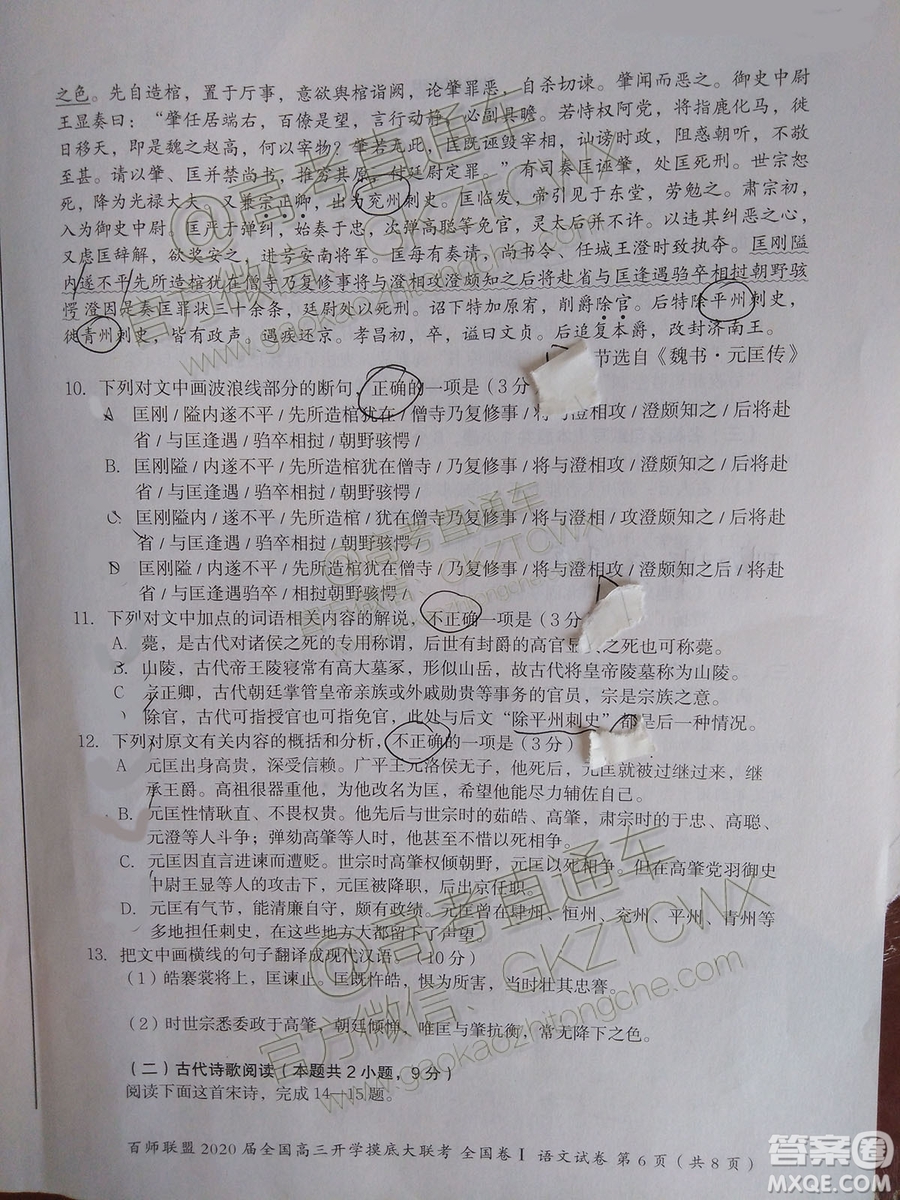 之色。先自造棺，置于厅事，意欲舆棺诣阙，论肇罪恶，自杀切谏。肇闻而恶之。御史中尉
王显奏曰：“肇任居端右，百僚是望，言行动静，必副具瞻。若恃权阿党，将指鹿化马，徙
日移天，即是魏之赵高，何以宰物？肇若无此，匡既诬毁宰相，讪谤时政，阻惑朝听，不敬
至甚。请以肇、匡并禁尚书，推穷其原，付廷尉定罪。”有司奏匡诬肇，处匡死刑。世宗恕
死，降为光禄大夫。又兼宗正卿，出为兖州刺史。匡临发，帝引见于东堂，劳勉之。肃宗初，
入为御史中尉。匡严于弹纠，始奏于忠，次弹高聪等免官，灵太后并不许。以违其纠恶之心，
又虑匡辞解，欲奖安之，进号安南将军。匡每有奏请，尚书令、任城王澄时致执夺。匡刚隘
内遂不平先所造棺犹在僧寺乃复修事将与澄相攻澄颇知之后将赴省与匡逢遇驺卒相挝朝野骇
愕 澄因是奏匡罪状三十余条，廷尉处以死刑。诏下特加原宥，削爵除官。后特除平州刺史，
徙青州刺史，皆有政声。遇疾还京。孝昌初，卒，谥曰文贞。后追复本爵，改封济南王。
节选自《魏书·元匡传》
10. 下列对文中画波浪线部分的断句，正确的一项是（3 分
A 匡刚/隘内遂不平/先所造棺犹在/僧寺乃复修事/将与澄相攻/澄颇知之/后将赴
省/与匡逢遇/驺卒相挝/朝野骇愕/
B. 匡刚隘/内遂不平/先所造棺犹在僧寺/乃复修事/将与澄相攻/澄颇知之/后将赴
省/与匡逢遇/驺卒相挝/朝野骇愕/
C. 匡刚隘内/遂不平/先所造棺/犹在僧寺/乃复修事/将与澄相/攻澄颇知之/后将赴
省/与匡逢遇/驺卒相挝/朝野骇愕/
D 匡刚隘/内遂不平/先所造棺/犹在僧寺乃复修事/将与澄相攻/澄颇知之/后将赴
省/与匡逢遇/驺卒相挝/朝野骇愕/
11. 下列对文中加点的词语相关内容的解说，不正确一项是（3 分
A. 薨，是古代对诸侯之死的专用称谓，后世有封爵的高官显人之死也可称薨。
B. 山陵，古代帝王陵寝常有高大墓冢，形似山岳，故古代将皇帝陵墓称为山陵。
C 宗正卿，古代朝廷掌管皇帝亲族或外戚勋贵等事务的官员，宗是宗族之意。
除官，古代可指授官也可指免官，此处与后文“除平州刺史”都是后一种情况。
12. 下列对原文有关内容的概括和分析，不正确的一项是（3 分）
A 元匡出身高贵，深受信赖。广平王元洛侯无子，他死后，元匡就被过继过来，继
承王爵。高祖很器重他，为他改名为匡，希望他能尽力辅佐自己。
B. 元匡性情耿直、不畏权贵。他曾先后与世宗时的茹皓、高肇，肃宗时的于忠、高聪、
元澄等人斗争；弹劾高肇等人时，他甚至不惜以死相争。
C. 元匡因直言进谏而遭贬。世宗时高肇权倾朝野，元匡以死相争。但在高肇党羽御史
中尉王显等人的攻击下，元匡被降职，后出京任职。
D. 元匡有气节，能清廉自守，颇有政绩。元匡曾在肆州、恒州、兖州、平州、青州等
多地担任刺史，在这些地方大都留下了声望。
13. 把文中画横线的句子翻译成现代汉语。（10 分）
（1）皓褰裳将上，匡谏止。匡既忤皓，惧为所害，当时壮其忠謇。
（2）时世宗悉委政于高肇，朝廷倾惮，唯匡与肇抗衡，常无降下之色。
（二）古代诗歌阅读（本题共 2 小题，9 分）
阅读下面这首宋诗，完成 14—15 题。
百师联盟 2020 届全国高三开学摸底大联考 全国卷 Ⅰ 语文试卷 第 6 页（共 8 页）
@高考直通车
官方微信：GKZTCWX
www.gaokaozhitongche.com
@高考直通车
官方微信：GKZTCWX
www.gaokaozhitongche.com
答案圈
MXQE.COM